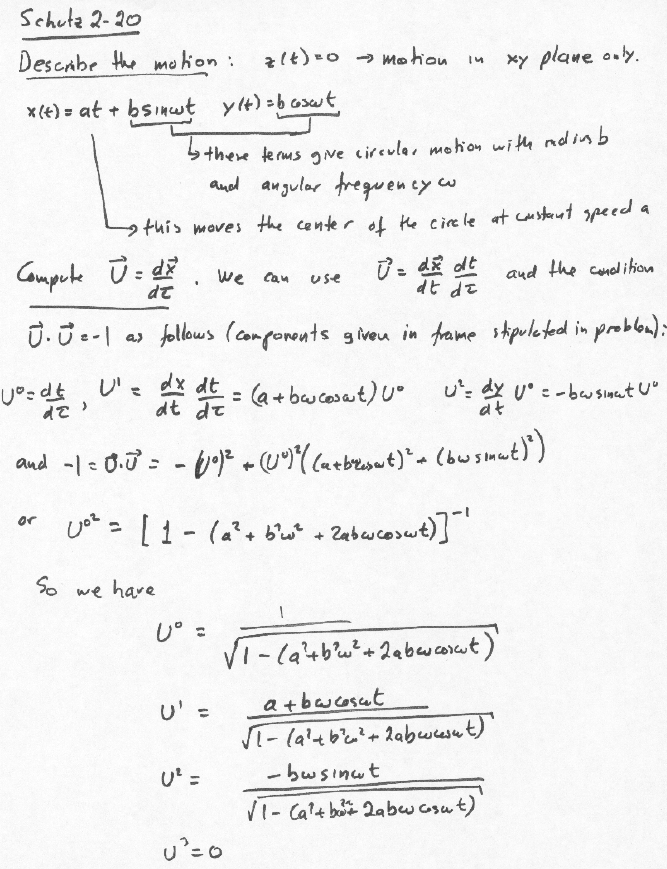 Schutz 2-20
Describe the motion: z(t)=0 → motion in xy plane only.
x(t) = at + b sinωt y(t) = b cosωt
↳ these terms give circular motion with radius b
and angular frequency ω
↳ this moves the center of the circle at constant speed a
Compute U⃗ = dx⃗/dτ. We can use U⃗ = dx⃗/dt dt/dτ and the condition
U⃗·U⃗ = -1 as follows (components given in frame stipulated in problem):
U⁰ = dt/dτ, U¹ = dx/dt dt/dτ = (a + bω cosωt) U⁰ U² = dy/dt U⁰ = -bω sinωt U⁰
and -1 = U⃗·U⃗ = -(U⁰)² + (U⁰)²((a+bω cosωt)² + (bω sinωt)²)
or U⁰² = [1 - (a² + b²ω² + 2abω cosωt)]⁻¹
So we have
U⁰ = 1/√(1 - (a² + b²ω² + 2abω cosωt))
U¹ = (a + bω cosωt)/√(1 - (a² + b²ω² + 2abω cosωt))
U² = (-bω sinωt)/√(1 - (a² + b²ω² + 2abω cosωt))
U³ = 0